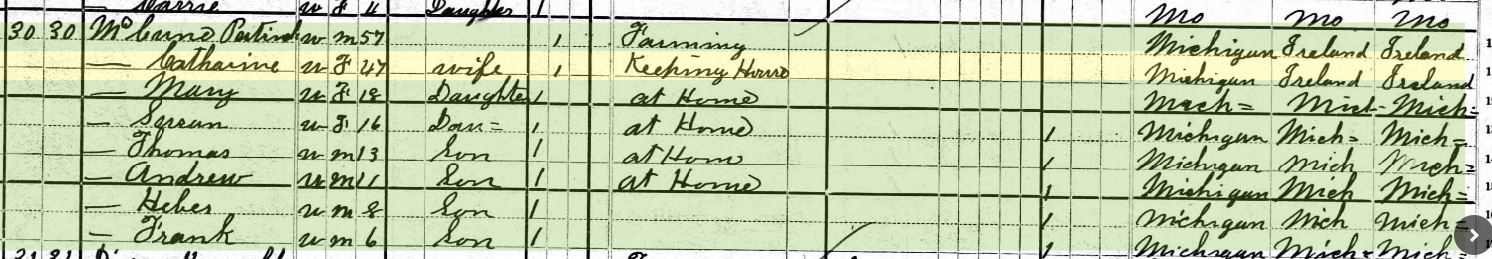 Carrie w F 11 Daughter 1 Mo Mo Mo
30 30 McCune w m 57 1 Farming Michigan Ireland Ireland
— Catharine w F 47 wife 1 Keeping House Michigan Ireland Ireland
— Mary w F 18 Daughter 1 at Home Mich= Mich- Mich=
— Susan w F 16 Dau= 1 at Home 1 Michigan Mich= Mich=
— Thomas w m 13 Son 1 at Home 1 Michigan Mich Mich=
— Andrew w m 11 Son 1 at Home 1 Michigan Mich Mich=
— Heber w m 8 Son 1 1 Michigan Mich Mich=
— Frank w m 6 Son 1 1 Michigan Mich= Mich=